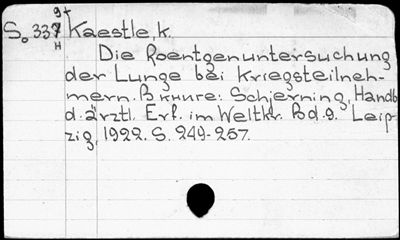 9+
So 337 Kaestle, K.
H
Die Roentgenuntersuchung
der Lunge bei Kriegsteilneh-
mern. В книге: Schjerning, Handb.
d. ärztl. Erf. im Weltkr. Bd. 9. Leip-
zig, 1922. S. 249-257.